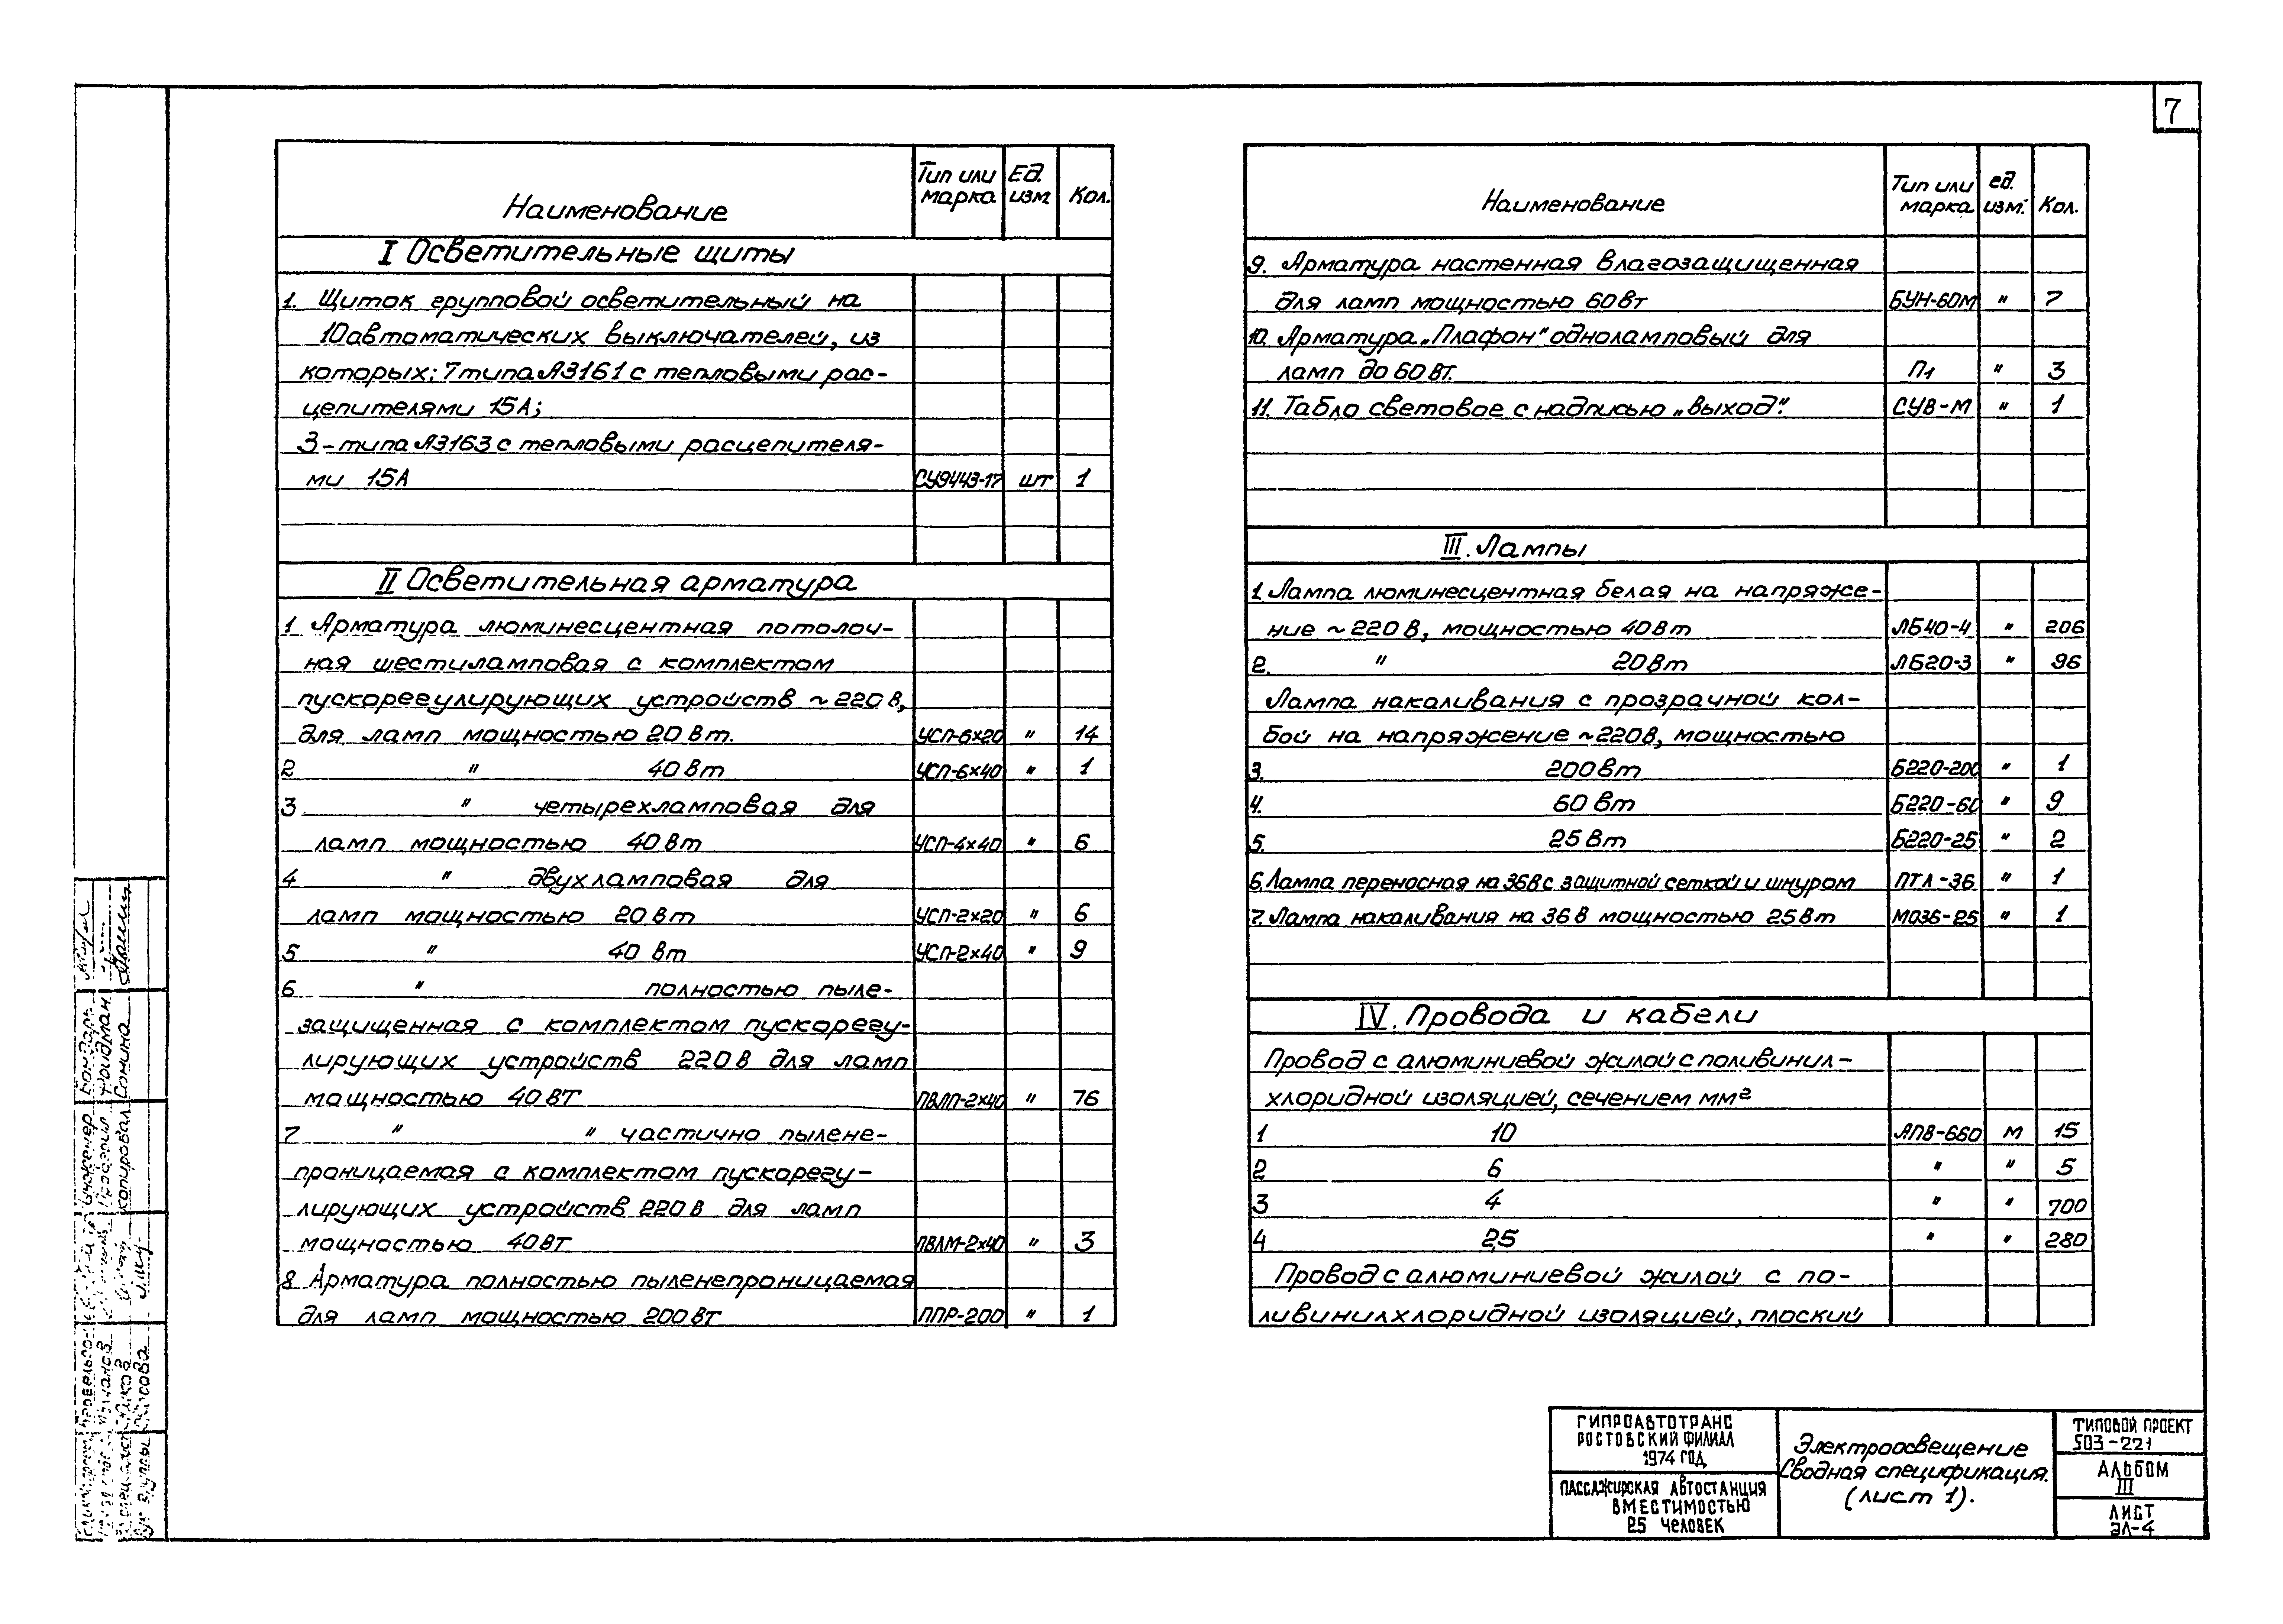 7
Наименование Тип или марка Ед. изм Кол.
I Осветительные щиты
1. Щиток групповой осветительный на
10 автоматических выключателей, из
которых: 7 типа А3161 с тепловыми рас-
цепителями 15А;
3-типа А3163 с тепловыми расцепителя-
ми 15А СУ9443-17 шт 1
II Осветительная арматура
1 Арматура люминесцентная потолоч-
ная шестиламповая с комплектом
пускорегулирующих устройств ~220В,
для ламп мощностью 20 Вт. УСП-6×20 " 14
2 " 40 Вт УСП-6×40 " 1
3 " четырехламповая для
ламп мощностью 40 Вт УСП-4×40 " 6
4 " двухламповая для
ламп мощностью 20 Вт УСП-2×20 " 6
5 " 40 Вт УСП-2×40 " 9
6 " полностью пыле-
защищенная с комплектом пускорегу-
лирующих устройств 220 В для ламп
мощностью 40 ВТ ПВЛП-2×40 " 76
7 " " частично пылене-
проницаемая с комплектом пускорегу-
лирующих устройств 220 В для ламп
мощностью 40 ВТ ПВЛМ-2×40 " 3
8 Арматура полностью пыленепроницаемая
для ламп мощностью 200 ВТ ППР-200 " 1
Наименование Тип или марка ед. изм. Кол.
9. Арматура настенная влагозащищенная
для ламп мощностью 60 Вт БУН-60М " 7
10. Арматура „Плафон" одноламповый для
ламп до 60 Вт. П1 " 3
11. Табло световое с надписью „Выход". СУВ-М " 1
III. Лампы
1. Лампа люминесцентная белая на напряже-
ние ~220 В, мощностью 40 Вт ЛБ40-4 " 206
2. " 20 Вт ЛБ20-3 " 96
Лампа накаливания с прозрачной кол-
бой на напряжение ~220В, мощностью
3. 200 Вт Б220-200 " 1
4. 60 Вт Б220-60 " 9
5. 25 Вт Б220-25 " 2
6. Лампа переносная на 36В с защитной сеткой и шнуром ПТЛ-36 " 1
7. Лампа накаливания на 36 В мощностью 25 Вт МО36-25 " 1
IV. Провода и кабели
Провод с алюминиевой жилой с поливинил-
хлоридной изоляцией, сечением мм²
1 10 АПВ-660 м 15
2 6 " " 5
3 4 " " 700
4 2,5 " " 280
Провод с алюминиевой жилой с по-
ливинилхлоридной изоляцией, плоский
ГИПРОАВТОТРАНС
РОСТОВСКИЙ ФИЛИАЛ
1974 ГОД
ПАССАЖИРСКАЯ АВТОСТАНЦИЯ
ВМЕСТИМОСТЬЮ
25 ЧЕЛОВЕК
Электроосвещение
Сводная спецификация.
(лист 1).
ТИПОВОЙ ПРОЕКТ
503-221
АЛЬБОМ
III
ЛИСТ
ЭЛ-4
Инженер Бондарь
Проверил Фридман
Копировал Сонина